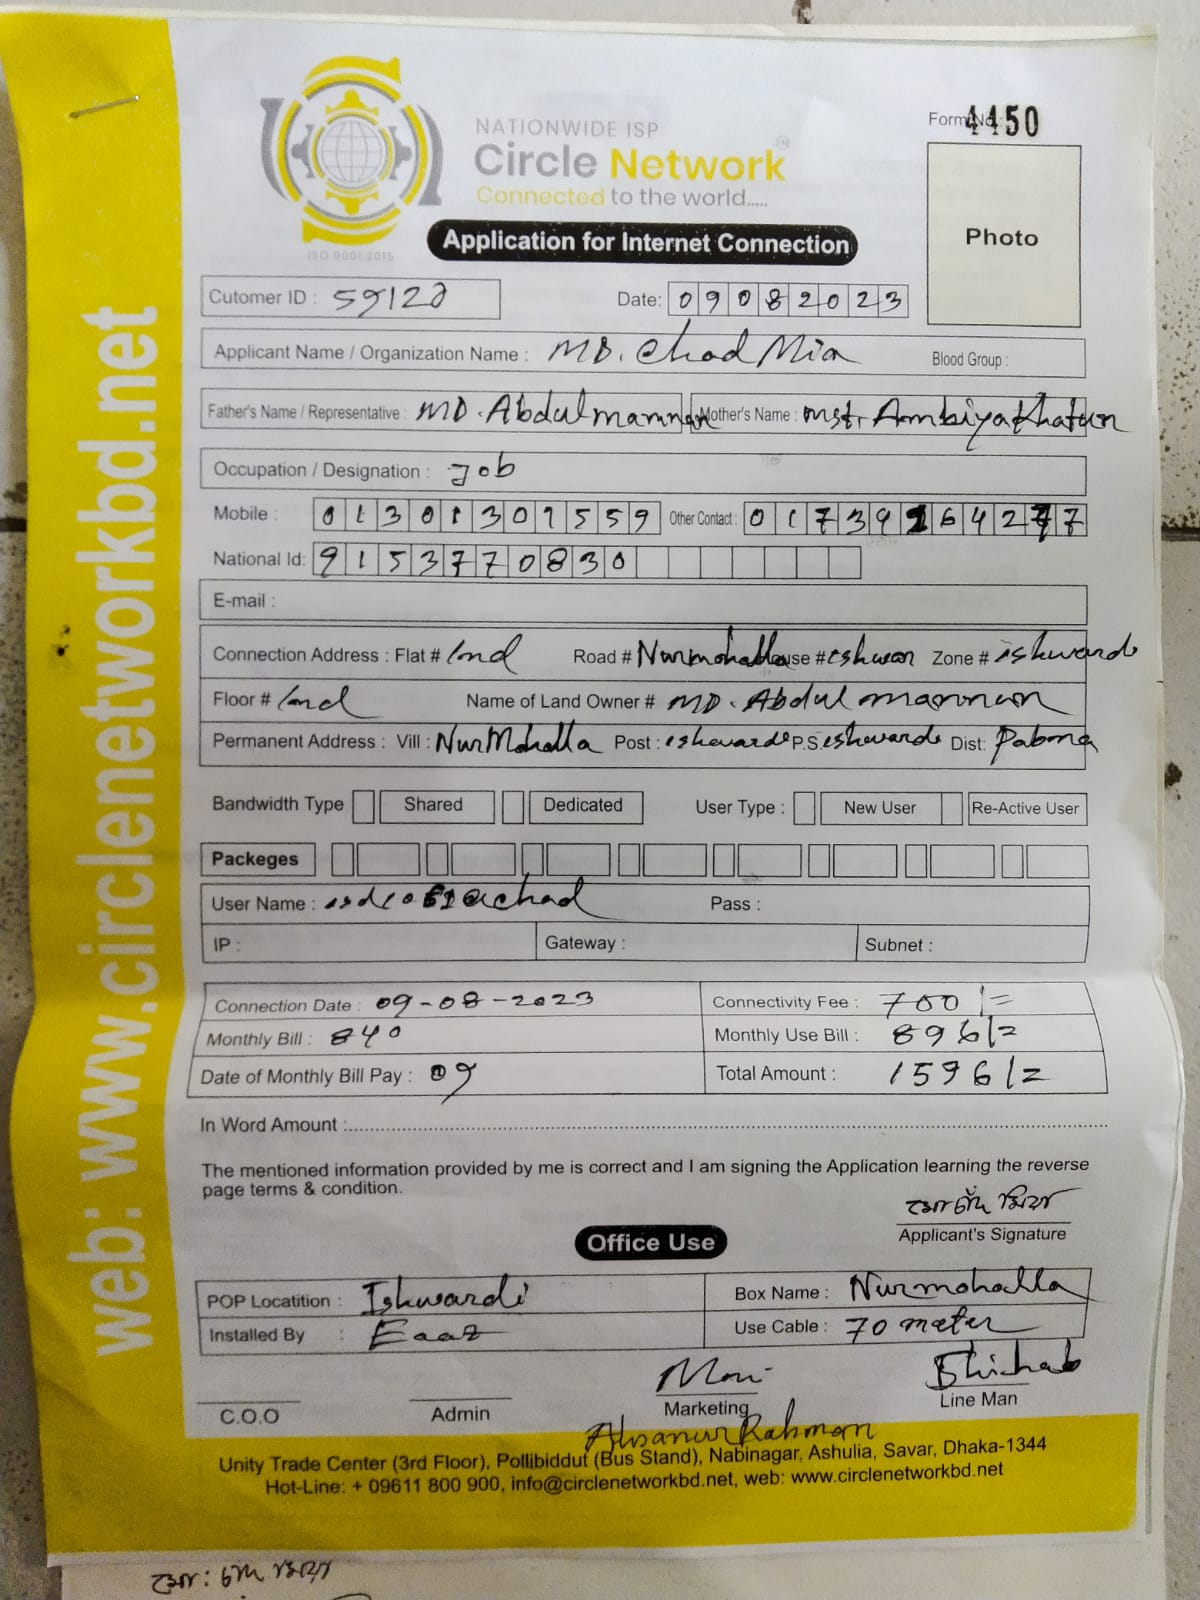 web: www.circlenetworkbd.net
NATIONWIDE ISP
Circle Network
Connected to the world.....
ISO 9001:2015
Form No: 4450
Photo
Application for Internet Connection
Cutomer ID : 59122 Date: 09082023
Applicant Name / Organization Name : MD. Chad Mia Blood Group :
Father's Name / Representative : MD. Abdul mannan Mother's Name : Mst. Ambiya Khatun
Occupation / Designation : Job
Mobile : 01301307559 Other Contact : 01739164277
National Id: 9153770830
E-mail :
Connection Address : Flat # Road # Nurmohalla House # Zone # ishwardi
Floor # Name of Land Owner # MD. Abdul mannan
Permanent Address : Vill : NurMohalla Post : P.S: Dist: Pabna
Bandwidth Type Shared Dedicated User Type : New User Re-Active User
Packeges
User Name : Pass :
IP : Gateway : Subnet :
Connection Date : 09-08-2023 Connectivity Fee : 700/=
Monthly Bill : 840 Monthly Use Bill : 896/=
Date of Monthly Bill Pay : 09 Total Amount : 1596/=
In Word Amount :
The mentioned information provided by me is correct and I am signing the Application learning the reverse
page terms & condition.
মোঃ চাঁদ মিয়া
Applicant's Signature
Office Use
POP Locatition : Ishwardi Box Name : Nurmohalla
Installed By : Eaaz Use Cable : 70 meter
Moni Shihab
C.O.O Admin Marketing Line Man
Ahsanur Rahman
Unity Trade Center (3rd Floor), Pollibiddut (Bus Stand), Nabinagar, Ashulia, Savar, Dhaka-1344
Hot-Line: + 09611 800 900, info@circlenetworkbd.net, web: www.circlenetworkbd.net
মোঃ চাঁদ মিয়া